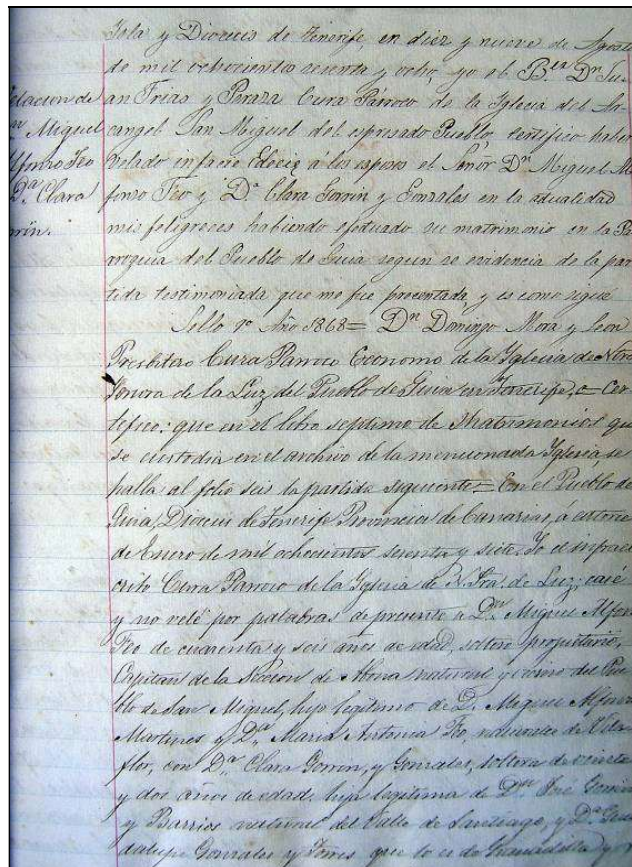 Isla y Diocecis de Tenerife, en diez y nueve de Agosto
de mil ochocientos sesenta y ocho, yo el B.er Dn Ju-
an Frias y Peraza Cura Párroco de la Iglesia del Ar-
cangel San Miguel del espresado Pueblo, certifico haber
velado infacie Eclecie á los esposos el Señor Dn Miguel Al
fonso Feo y Da Clara Gorrin y Gonzales en la actualidad
mis feligreces habiendo efectuado su matrimonio en la Pa
rroquia del Pueblo de Guia segun se evidencia de la par
tida testimoniada que me fue precentada y es como sigue
Sello 9o Año 1868= Dn Domingo Mora y Leon
Presbitero Cura Parroco Economo de la Iglesia de Ntra
Señora de la Luz del Pueblo de Guia en Tenerife, = Cer
tifico: que en el libro septimo de Matrimonios que
se custodia en el archivo de la mencionada Iglesia, se
halla al folio seis la partida siguiente = En el Pueblo de
Guia, Diocecis de Tenerife Provincia de Canarias, á catorce
de Enero de mil ochocientos sesenta y siete. Yo el infraes
crito Cura Parroco de la Iglesia de N. Tra. de Luz; casé
y no velé por palabras de presente a Dn. Miguel Alfonso
Feo de cuarenta y seis años de edad, soltero propietario,
Capitan de la Seccion de Abona natural y vecino del Pue
blo de San Miguel, hijo legitimo de D. Miguel Alfonso
Martines y Da Maria Antonia Feo, naturales de Vila
flor, con Da Clara Gorrin, y Gonzales, soltera de veinte
y dos años de edad, hija legitima de Dn José Gorrin
y Barrios natural del Valle de Santiago, y Da Gua
dalupe Gonzales y Torres que lo es de Granadilla y
elacion de
n Miguel
lfonso Feo
Da. Clara
rrin.